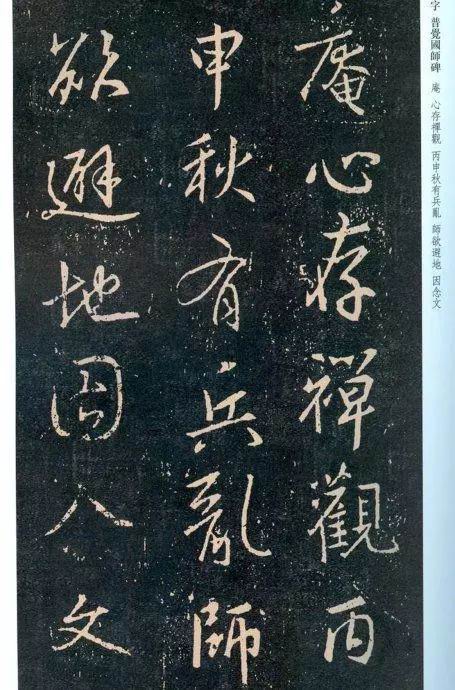 字 普覺國師碑 庵 心存禪觀 丙申秋有兵亂 師欲避地 因念文
庵心存禪觀丙
申秋有兵亂師
欲避地因八文